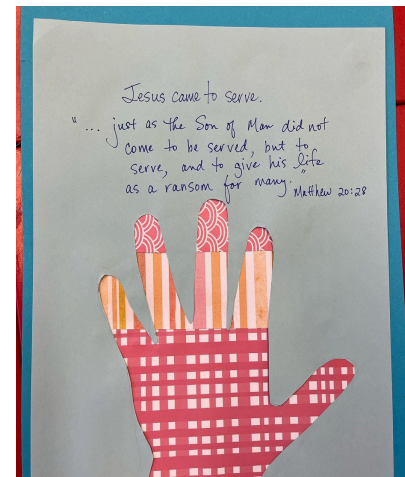 Jesus came to serve.
"... just as the Son of Man did not
come to be served, but to
serve, and to give his life
as a ransom for many."
Matthew 20:28